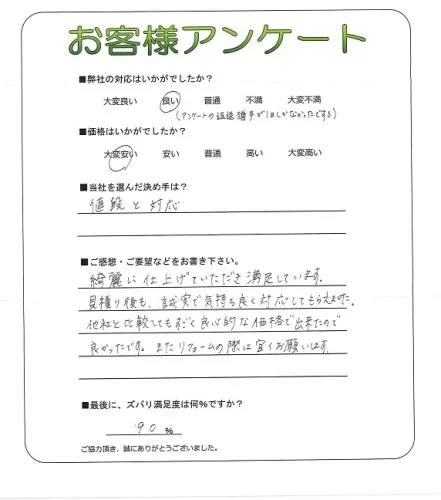 お客様アンケート
■弊社の対応はいかがでしたか？
大変良い 良い 普通 不満 大変不満
(アンケートの返送 1日しかなかったですよ)
■価格はいかがでしたか？
大変安い 安い 普通 高い 大変高い
■当社を選んだ決め手は？
値段と対応
■ご感想・ご要望などをお書き下さい。
綺麗に仕上げていただき満足しています。
見積り後も、誠実で気持ち良く対応してもらえました。
他社と比較してもすごく良心的な価格で出来たので
良かったです。またリフォームの際は宜くお願います。
■最後に、ズバリ満足度は何%ですか？
90 %
ご協力頂き、誠にありがとうございました。